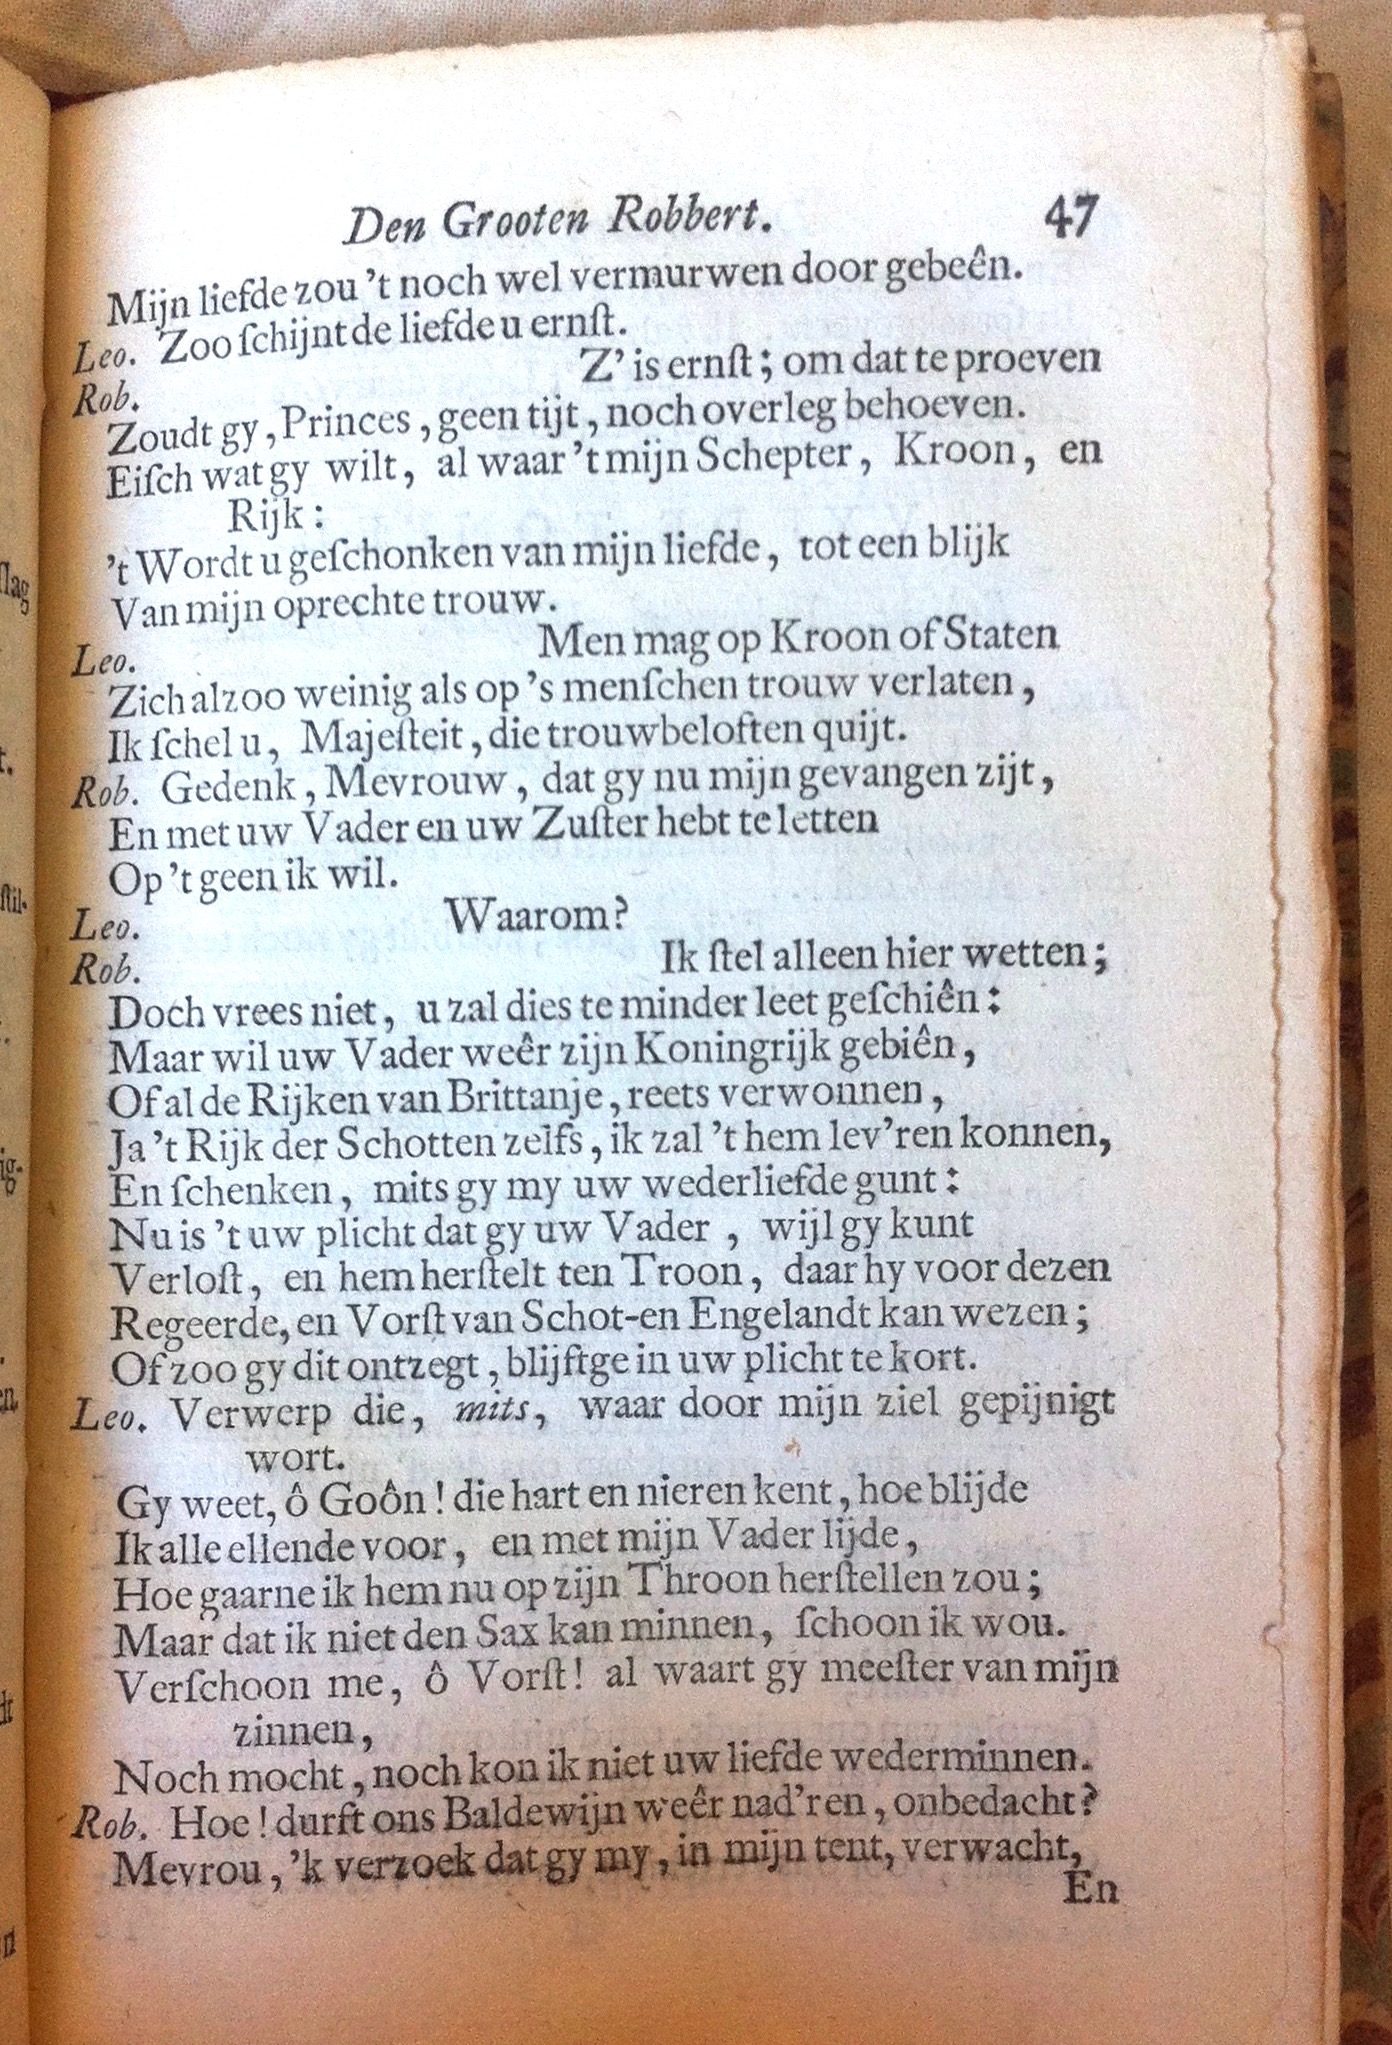 Den Grooten Robbert. 47
Mijn liefde zou 't noch wel vermurwen door gebeên.
Leo. Zoo ſchijnt de liefde u ernſt.
Rob. Z' is ernſt; om dat te proeven
Zoudt gy, Princes, geen tijt, noch overleg behoeven.
Eiſch wat gy wilt, al waar 't mijn Schepter, Kroon, en
Rijk:
't Wordt u geſchonken van mijn liefde, tot een blijk
Van mijn oprechte trouw.
Leo. Men mag op Kroon of Staten
Zich alzoo weinig als op 's menſchen trouw verlaten,
Ik ſchel u, Majeſteit, die trouwbeloften quijt.
Rob. Gedenk, Mevrouw, dat gy nu mijn gevangen zijt,
En met uw Vader en uw Zuſter hebt te letten
Op 't geen ik wil.
Leo. Waarom?
Rob. Ik ſtel alleen hier wetten;
Doch vrees niet, u zal dies te minder leet geſchiên:
Maar wil uw Vader weêr zijn Koningrijk gebiên,
Of al de Rijken van Brittanje, reets verwonnen,
Ja 't Rijk der Schotten zelfs, ik zal 't hem lev'ren konnen,
En ſchenken, mits gy my uw wederliefde gunt:
Nu is 't uw plicht dat gy uw Vader, wijl gy kunt
Verloſt, en hem herſtelt ten Troon, daar hy voor dezen
Regeerde, en Vorſt van Schot-en Engelandt kan wezen;
Of zoo gy dit ontzegt, blijft ge in uw plicht te kort.
Leo. Verwerp die, mits, waar door mijn ziel gepijnigt
wort.
Gy weet, ô Goôn! die hart en nieren kent, hoe blijde
Ik alle ellende voor, en met mijn Vader lijde,
Hoe gaarne ik hem nu op zijn Throon herſtellen zou;
Maar dat ik niet den Sax kan minnen, ſchoon ik wou.
Verſchoon me, ô Vorſt! al waart gy meeſter van mijn
zinnen,
Noch mocht, noch kon ik niet uw liefde wederminnen.
Rob. Hoe! durft ons Baldewijn weêr nad'ren, onbedacht?
Mevrou, 'k verzoek dat gy my, in mijn tent, verwacht,
En